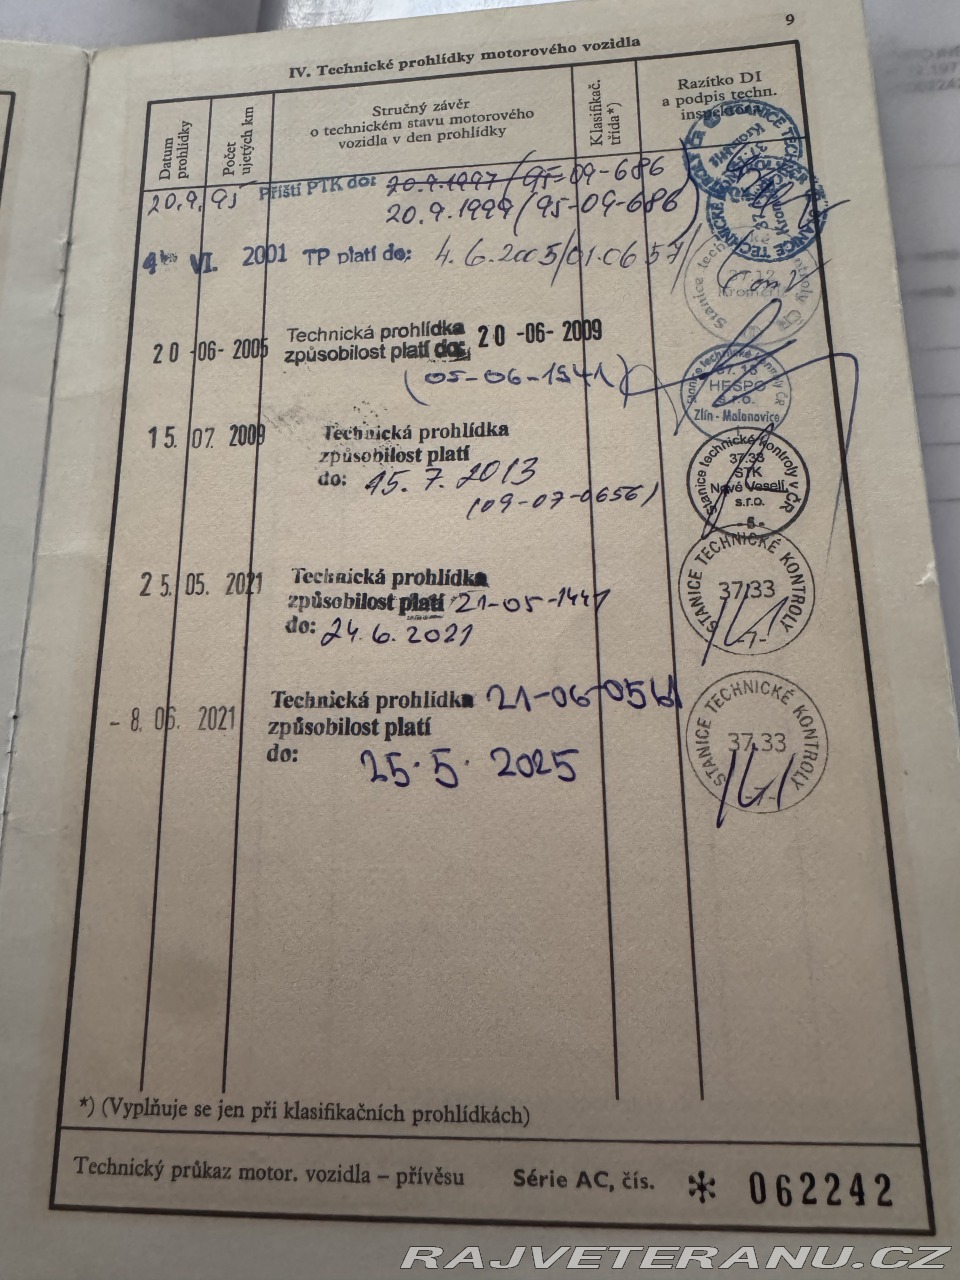 9
IV. Technické prohlídky motorového vozidla
Datum prohlídky
Počet ujetých km
Stručný závěr
o technickém stavu motorového
vozidla v den prohlídky
Klasifikač. třída*)
Razítko DI
a podpis techn.
inspektora
20.9.95 Příští PTK do: 20.9.1997/95-09-686
20.9.1999/95-09-686
VI. 2001 TP platí do: 4.6.2005/01.0657/
20 -06- 2005 Technická prohlídka
způsobilost platí do: 20 -06- 2009
(05-06-1541)
Stanice technické kontroly ČR
HESPO
s.r.o.
Zlín - Malenovice
15. 07. 2009 Technická prohlídka
způsobilost platí
do: 15. 7. 2013
(09-07-0656)
Stanice technické kontroly v ČR
37.33
STK
Nové Veselí
s.r.o.
- 5 -
25. 05. 2021 Technická prohlídka
způsobilost platí 21-05-1441
do: 24.6.2021
STANICE TECHNICKÉ KONTROLY
37.33
-7-
- 8. 06. 2021 Technická prohlídka 21-06-0561
způsobilost platí
do: 25.5.2025
STANICE TECHNICKÉ KONTROLY
37.33
-7-
*) (Vyplňuje se jen při klasifikačních prohlídkách)
Technický průkaz motor. vozidla – přívěsu Série AC, čís. * 062242
RAJVETERANU.CZ